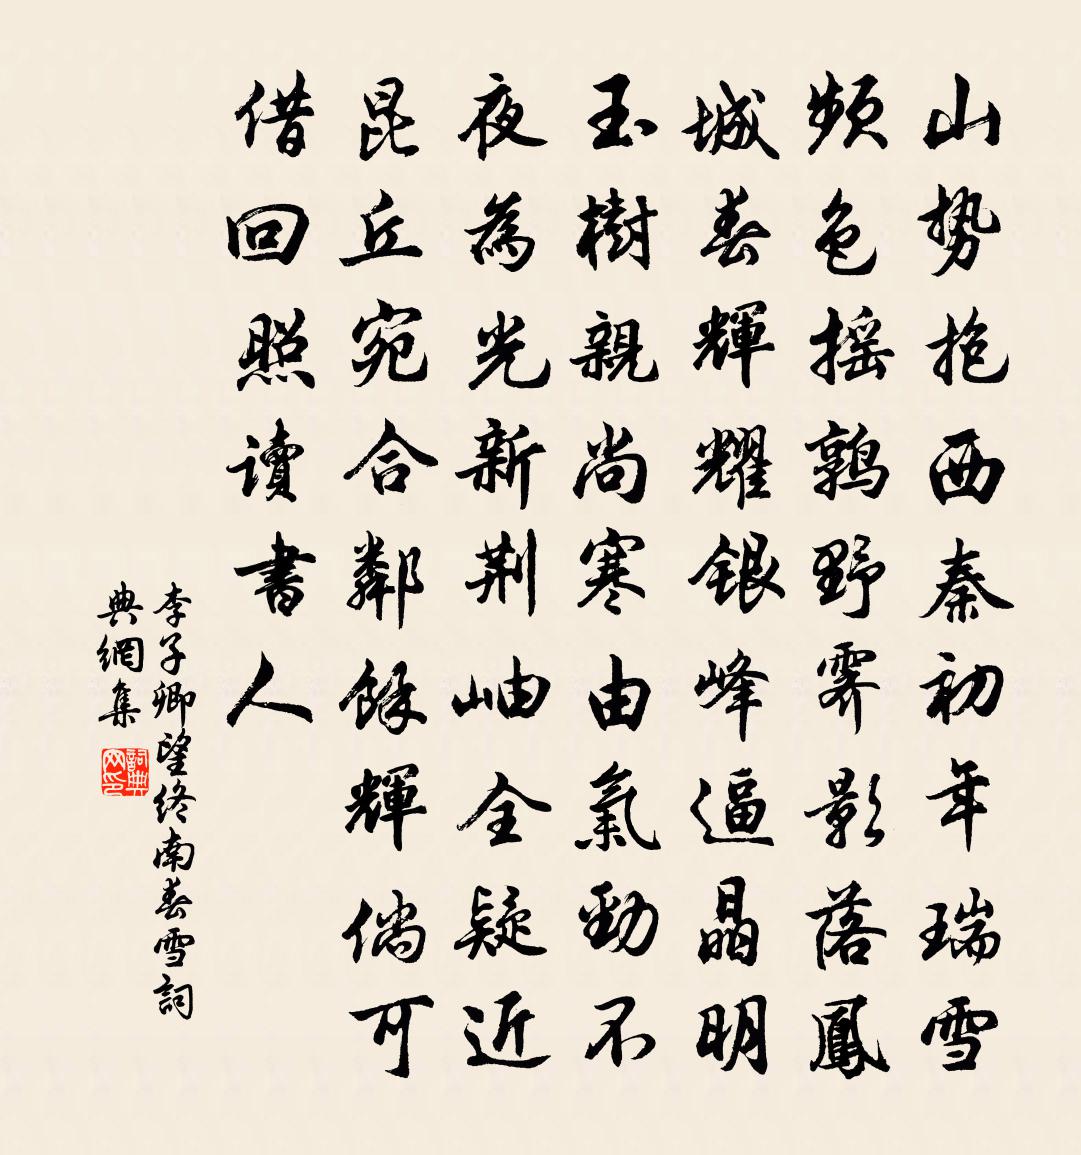 山势抱西秦初年瑞雪
頻色摇鶉野霽影落鳳
城春輝耀銀峰逼晶明
玉樹親尚寒由氣勁不
夜為光新荆岫全疑近
昆丘宛合鄰餘輝倘可
借回照讀書人
李子卿望终南春雪詞
典網集
詞典網印